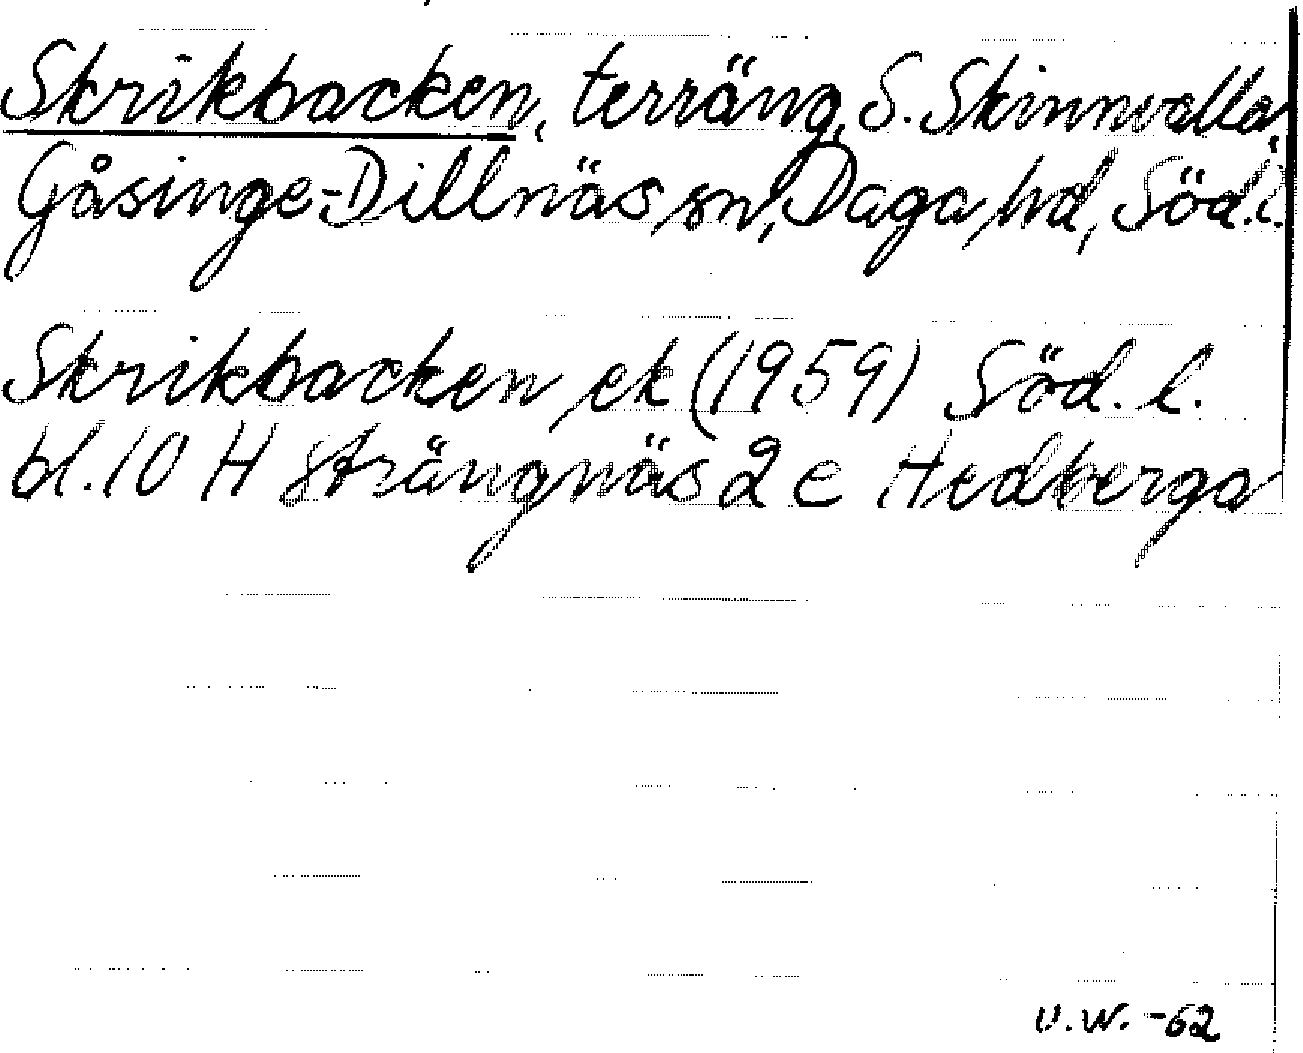 Skrikbacken, terräng, S. Skinnvalla,
Gåsinge-Dillnäs sn, Daga hd, Söd. l.
Skrikbacken ek (1959) Söd. l.
bl. 10 H Strängnäs 2 e Hedberga
U.W. -62